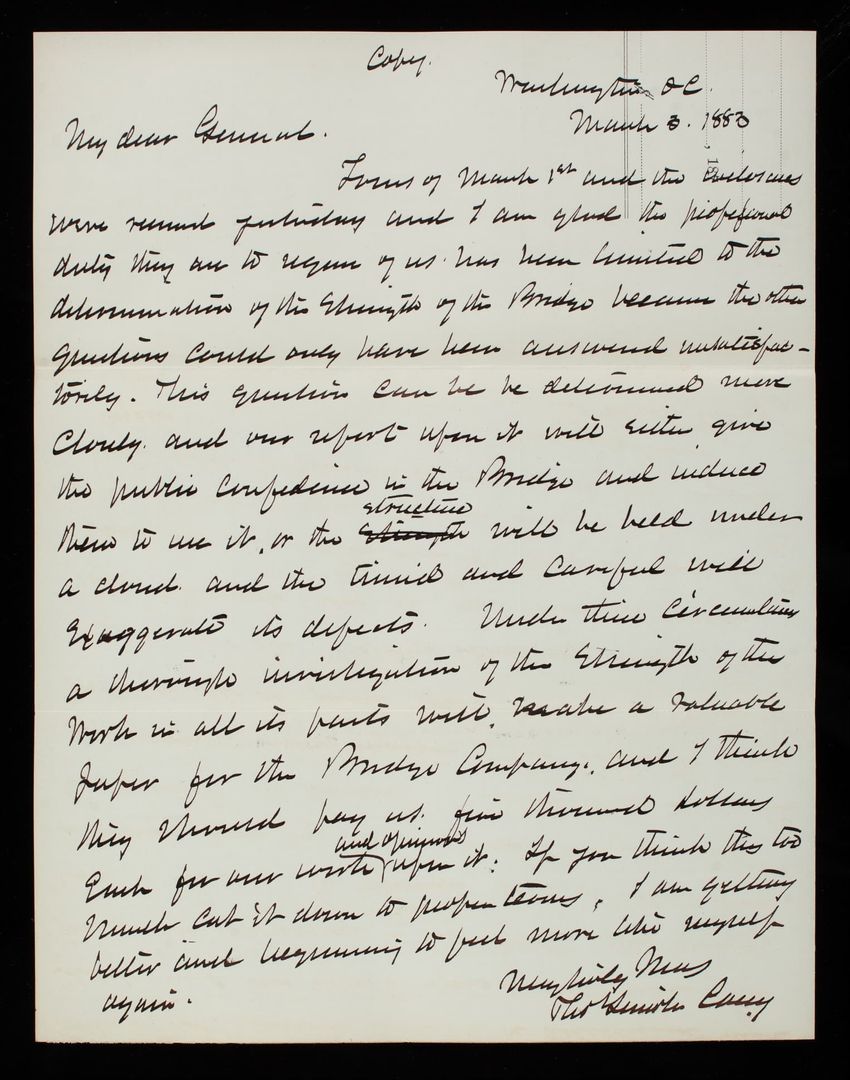 Copy.
Washington D C.
March 3. 1883
My dear General.
Yours of March 1st and the enclosures
were received yesterday and I am glad the professional
duty they are to require of us. has been limited to the
determination of the Strength of the Bridge because the other
questions could only have been answered unsatisfac-
torily. This question can be be determined more
closely. and our report upon it will either give
the public confidence in the Bridge and induce
them to use it, or the structure will be held under
a cloud. and the timid and careful will
exaggerate its defects. Under these circumstances
a thorough investigation of the Strength of the
Work in all its parts will, make a valuable
paper for the Bridge Company., and I think
they should pay us. five thousand dollars
Each for our work and opinions upon it: If you think this too
much cut it down to proper terms. I am getting
better and beginning to feel more like myself
again.
Very truly Yours
Thos Lincoln Casey